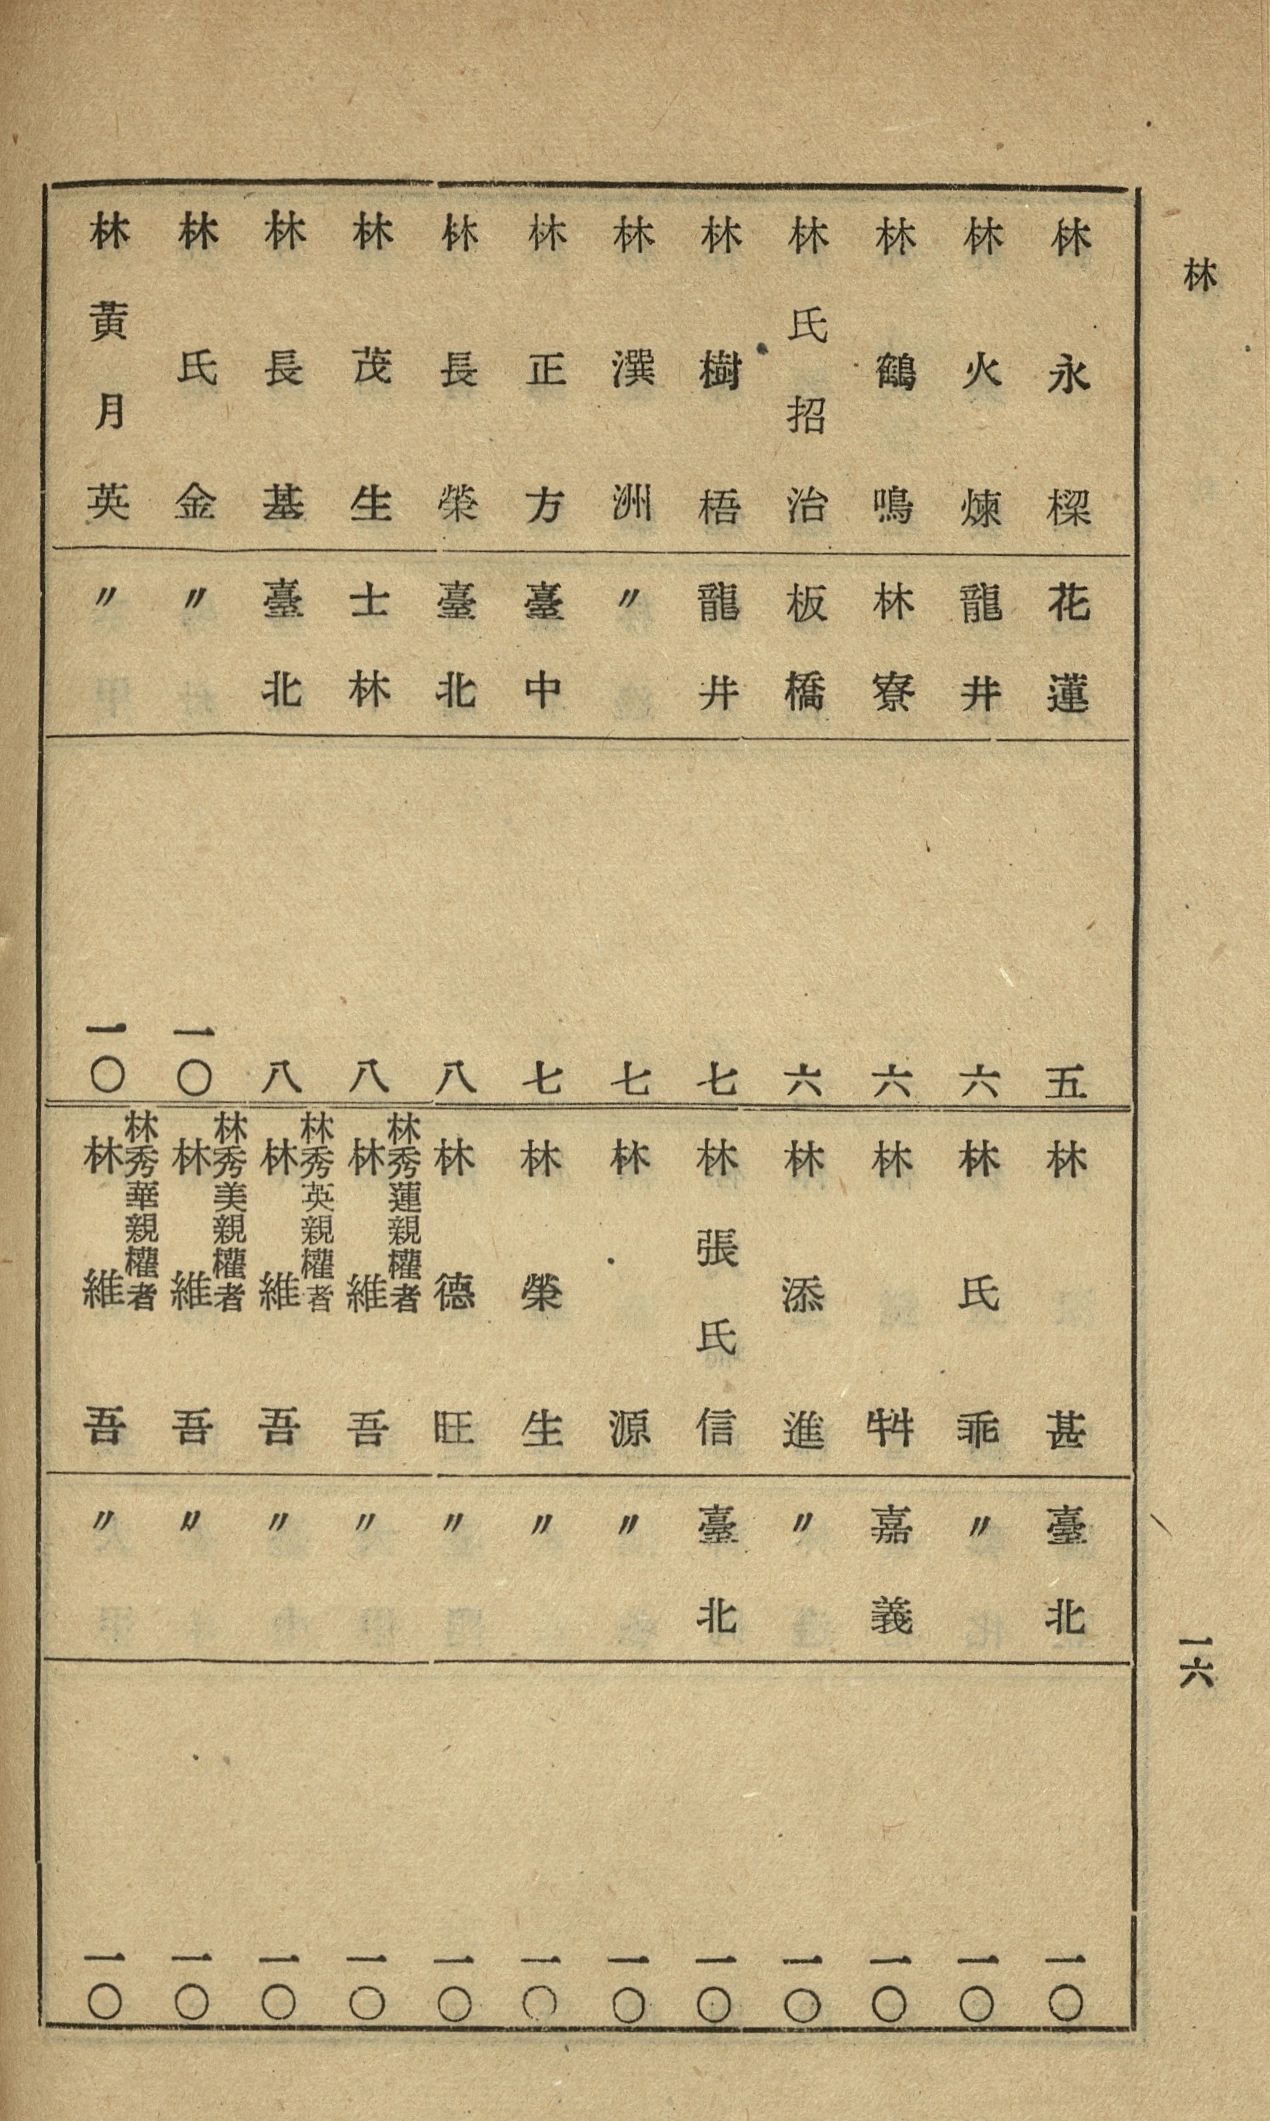 林
一六
林永樑 花蓮 五
林火煉 龍井 六
林鶴鳴 林寮 六
林氏招治 板橋 六
林樹梧 龍井 七
林潩洲 〃 七
林正方 臺中 七
林長榮 臺北 八
林茂生 士林 八
林長基 臺北 八
林氏金 〃 一〇
林黃月英 〃 一〇
林甚 臺北 一〇
林氏乖 〃 一〇
林牪 嘉義 一〇
林添進 〃 一〇
林張氏信 臺北 一〇
林源 〃 一〇
林榮生 〃 一〇
林德旺 〃 一〇
林秀蓮親權者
林維吾 〃 一〇
林秀英親權者
林維吾 〃 一〇
林秀美親權者
林維吾 〃 一〇
林秀華親權者
林維吾 〃 一〇